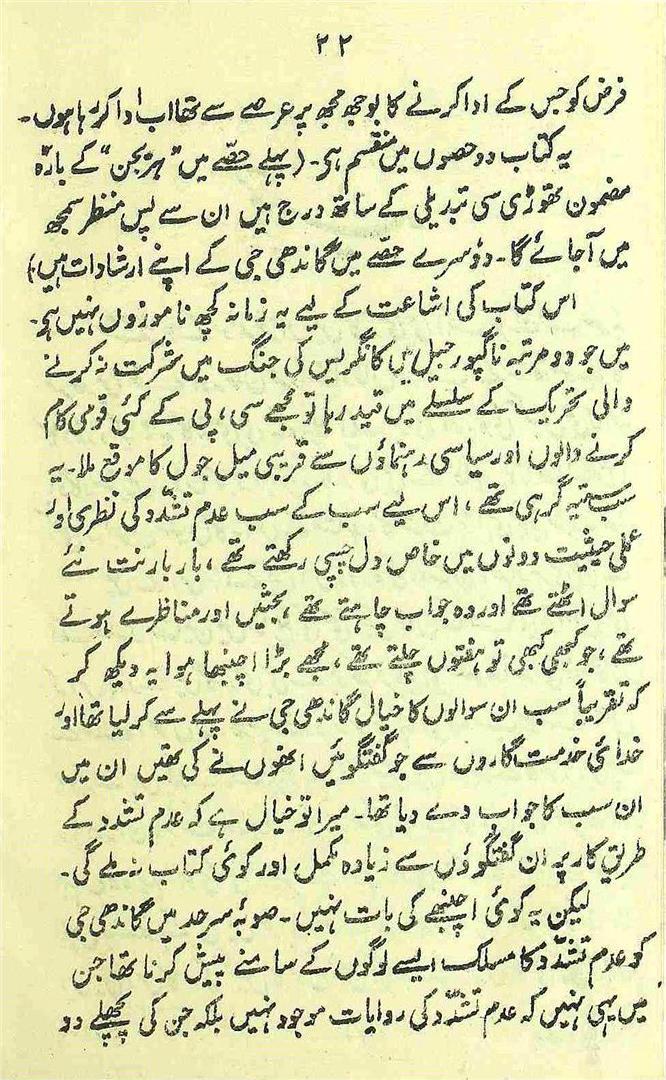 ۲۲
فرض کو جس کے ادا کرنے کا بوجھ مجھ پر عرصے سے تھا اب ادا کر رہا ہوں۔
یہ کتاب دو حصوں میں منقسم ہی۔ (پہلے حصّے میں "ہریجن" کے بارہ
مضمون تھوڑی سی تبدیلی کے ساتھ درج ہیں ان سے پس منظر سمجھ
میں آجائے گا۔ دوسرے حصّے میں گاندھی جی کے اپنے ارشادات ہیں)
اس کتاب کی اشاعت کے لیے یہ زمانہ کچھ ناموزوں نہیں ہی۔
میں جو دو مرتبہ ناگپور جیل میں کانگریس کی جنگ میں شرکت نہ کرنے
والی تحریک کے سلسلے میں قید رہا تو مجھے سی، پی کے کئی قومی کام
کرنے والوں اور سیاسی رہنماؤں سے قریبی میل جول کا موقع ملا۔ یہ
سب ستیہ گرہی تھے، اس لیے سب کے سب عدم تشدّد کی نظری اور
عملی حیثیت دونوں میں خاص دل چسپی رکھتے تھے، بار بار نت نئے
سوال اٹھتے تھے اور وہ جواب چاہتے تھے، بحثیں اور مناظرے ہوتے
تھے، جو کبھی کبھی تو ہفتوں چلتے تھے، مجھے بڑا اچنبھا ہوا یہ دیکھ کر
کہ تقریباً سب ان سوالوں کا خیال گاندھی جی نے پہلے سے کر لیا تھا اور
خدائی خدمت گاروں سے جو گفتگوئیں انھوں نے کی تھیں ان میں
ان سب کا جواب دے دیا تھا۔ میرا تو خیال ہے کہ عدم تشدد کے
طریقِ کار پر ان گفتگوؤں سے زیادہ مکمل اور کوئی کتاب نہ ملے گی۔
لیکن یہ کوئی اچنبھے کی بات نہیں۔ صوبۂ سرحد میں گاندھی جی
کو عدم تشدّد کا مسلک ایسے لوگوں کے سامنے پیش کرنا تھا جن
میں یہی نہیں کہ عدم تشدّد کی روایات موجود نہیں بلکہ جن کی پچھلے دو